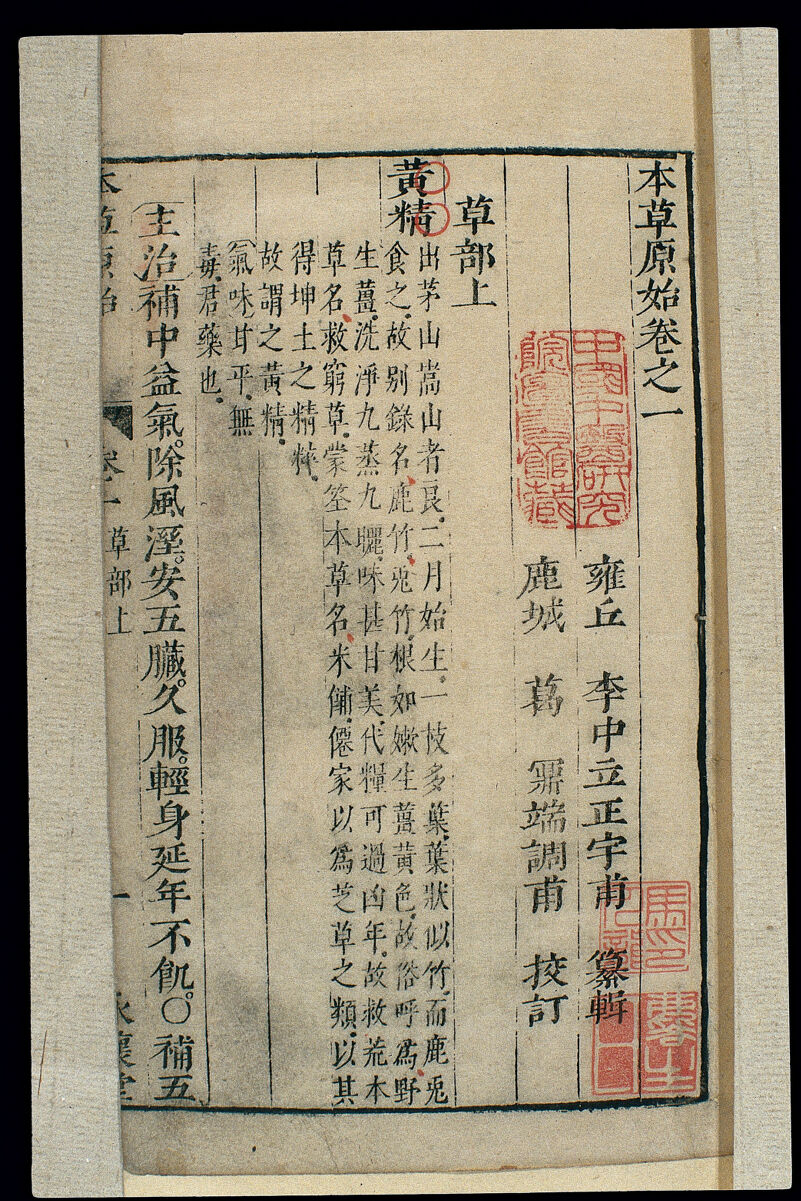 本草原始卷之一
雍丘 李中立正宇甫 纂輯
鹿城 葛鼐端調甫 挍訂
中國中醫研究
院圖書館藏
草部上
黃精
出茅山嵩山者良二月始生一枝多葉葉狀似竹而鹿兎
食之故别錄名鹿竹兎竹根如嫰生薑黃色故俗呼爲野
生薑洗淨九蒸九曬味甚甘美代糧可過凶年故救荒本
草名救窮草蒙筌本草名米餔僊家以爲芝草之類以其
得坤土之精粹
故謂之黃精
氣味甘平無
毒君藥也
主治補中益氣除風溼安五臟久服輕身延年不飢〇補五
本草原始 卷一 草部上 一 永懷堂